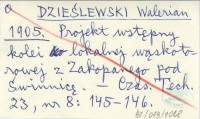 DZIEŚLEWSKI Walerian
1905. Projekt wstępny
kolei lokalnej wąskoto-
rowej z Zakopanego pod
Świnnicę. — Czas. Tech.
23, nr 8: 145-146.